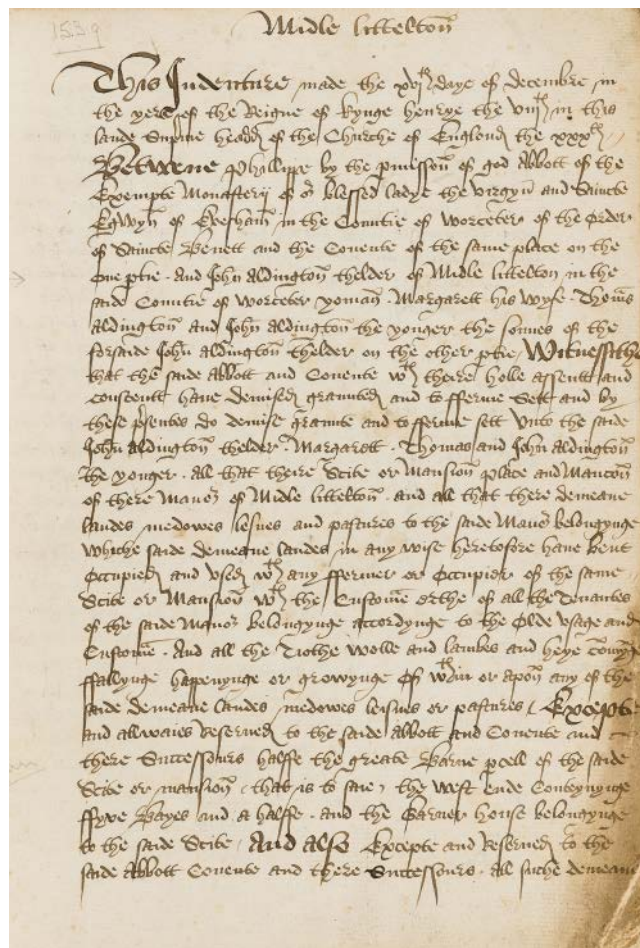 1539
Midle littelton
This Indenture made the xvjth daye of decembre in
the yere of the Reigne of kynge henrye the viijth in this
lande Supme headd of the Churche of Englond the xxxth
Betwene Phillippe by the pmisson of god Abbott of the
Exempte Monasterij of or blessed ladye the virgyn and Saincte
Egwyn of Evesham in the Countie of worceter of the Order
of Saincte Benett and the Covente of the same place on the
One ptie. And John Aldington thelder of Midle littelton in the
saide Countie of worceter yoman. Margarett his wyfe. Thoms
Aldington and John Aldington the yonger the sonnes of the
forsaide John Aldington thelder on the other ptie Witnessithe
that the saide Abbott and Covente wth theire holle assent and
consentt have demised graunted and to fferme Sett and by
these psentes do demise graunte and to fferme sett unto the saide
John Aldington thelder. Margarett. Thomas and John Aldington
the yonger. all that theire Scite or Mansion place and
of there Manor of Midle littelton. and all that there demeane
landes medowes lesues and pastures to the saide Manor belongynge
whiche saide demeane landes in any wise heretofore have bene
Occupied and used wth any ffermer or Occupier of the same
Scite or Mansion wth the Custome of all the Tenantes
of the saide Manor belongynge accordynge to the Olde usage and
Custome. And all the Tiothe wolle and lambes and heye comynge
ffallynge happenynge or growynge Of wthin or apon any of the
saide demeane landes medowes leisues or pastures Excepte
and allwaies Reserved to the saide Abbott and Covente and
there Successours halffe the greate Barne pcell of the saide
Scite or mansion that is to saie, the west ende Conteynynge
ffyve Bayes and a halffe. and the Garner house belongynge
to the saide Scite, And also Excepte and Reserved to the
saide Abbott Covente and there Successours. all suche demeane